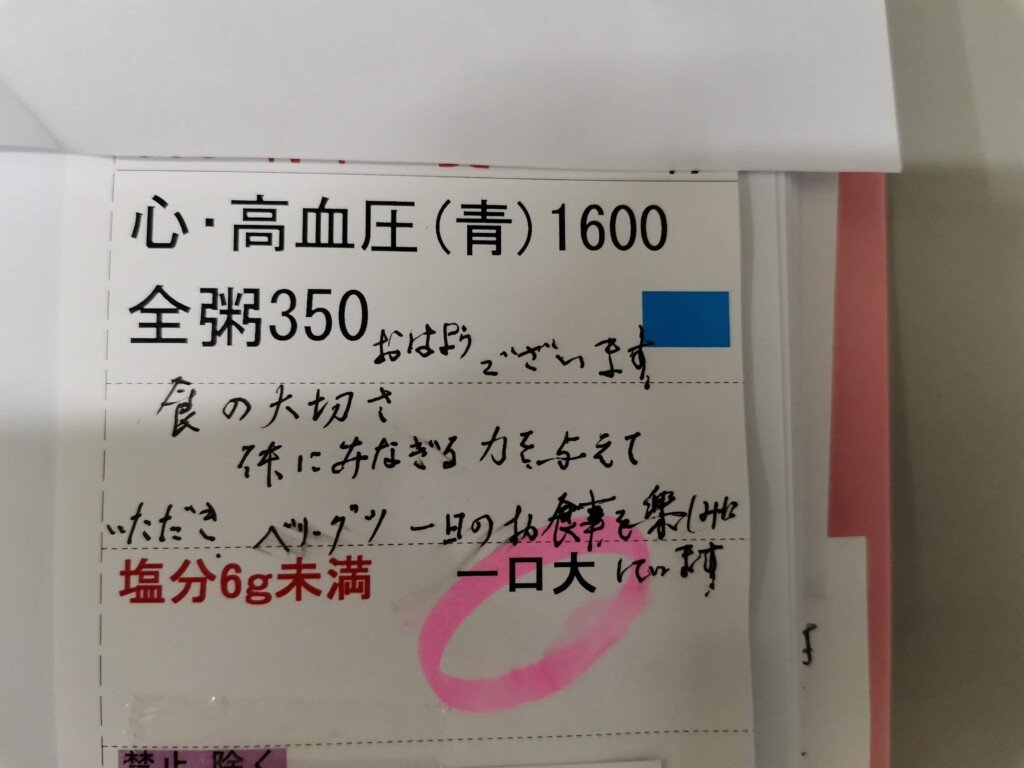 心・高血圧(青)1600
全粥350
おはよう
ございます。
食の大切さ
体にみなぎる力を与えて
いただき ベリーグツ 一日のお食事を楽しみに
塩分6g未満 一口大 しています
禁止 除く